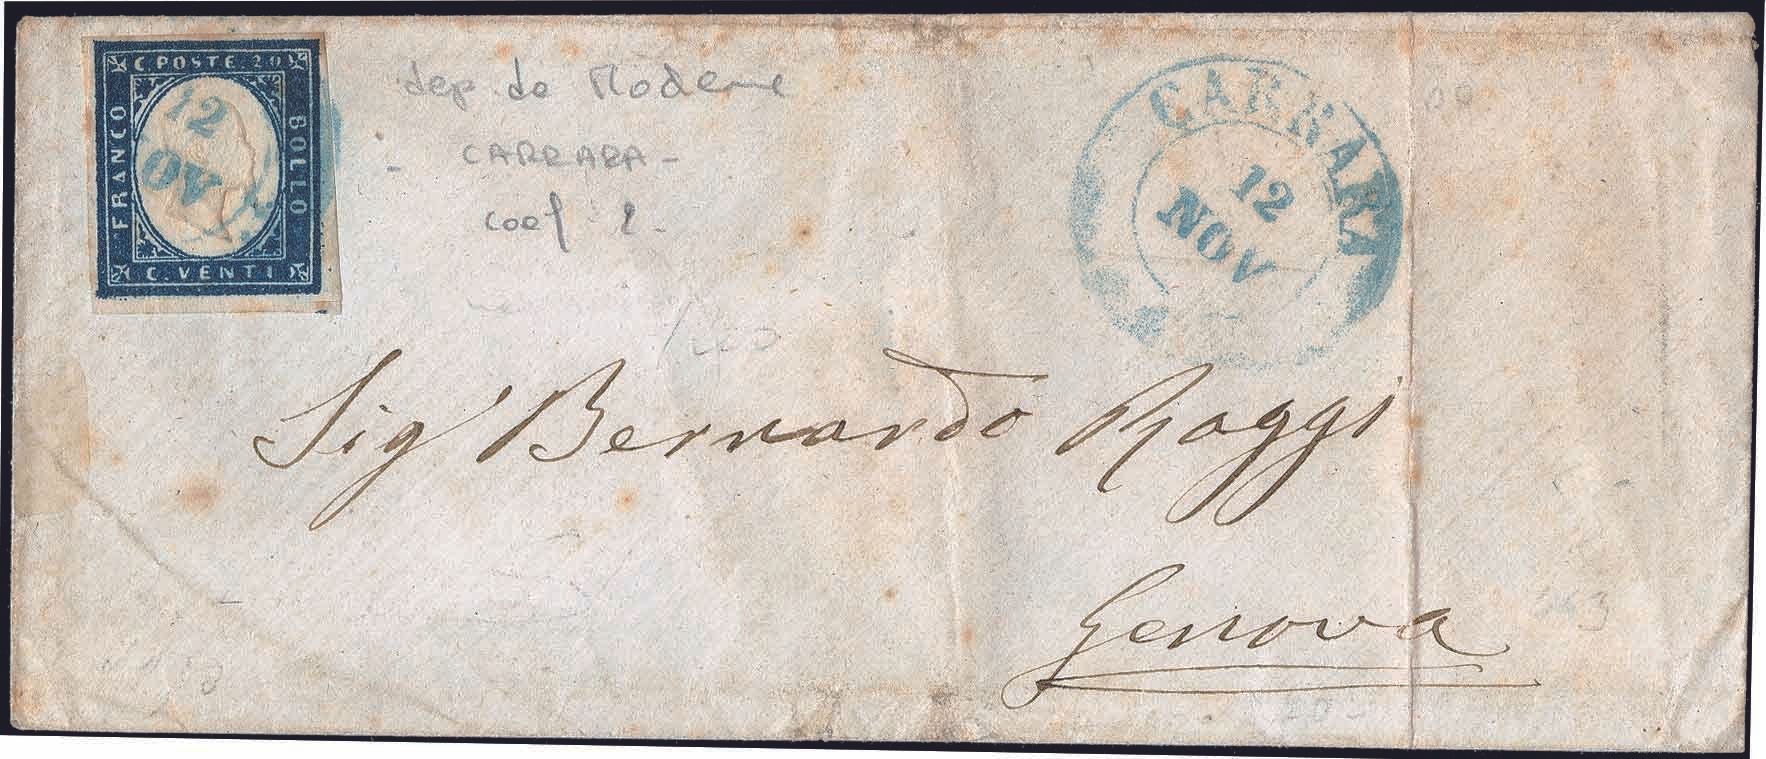 C. POSTE 20
FRANCO
BOLLO
C. VENTI
12
OV
dep. de Modene
CARRARA -
coef 2.
CARRARA
12
NOV
Sig' Bernardo Raggi
Genova